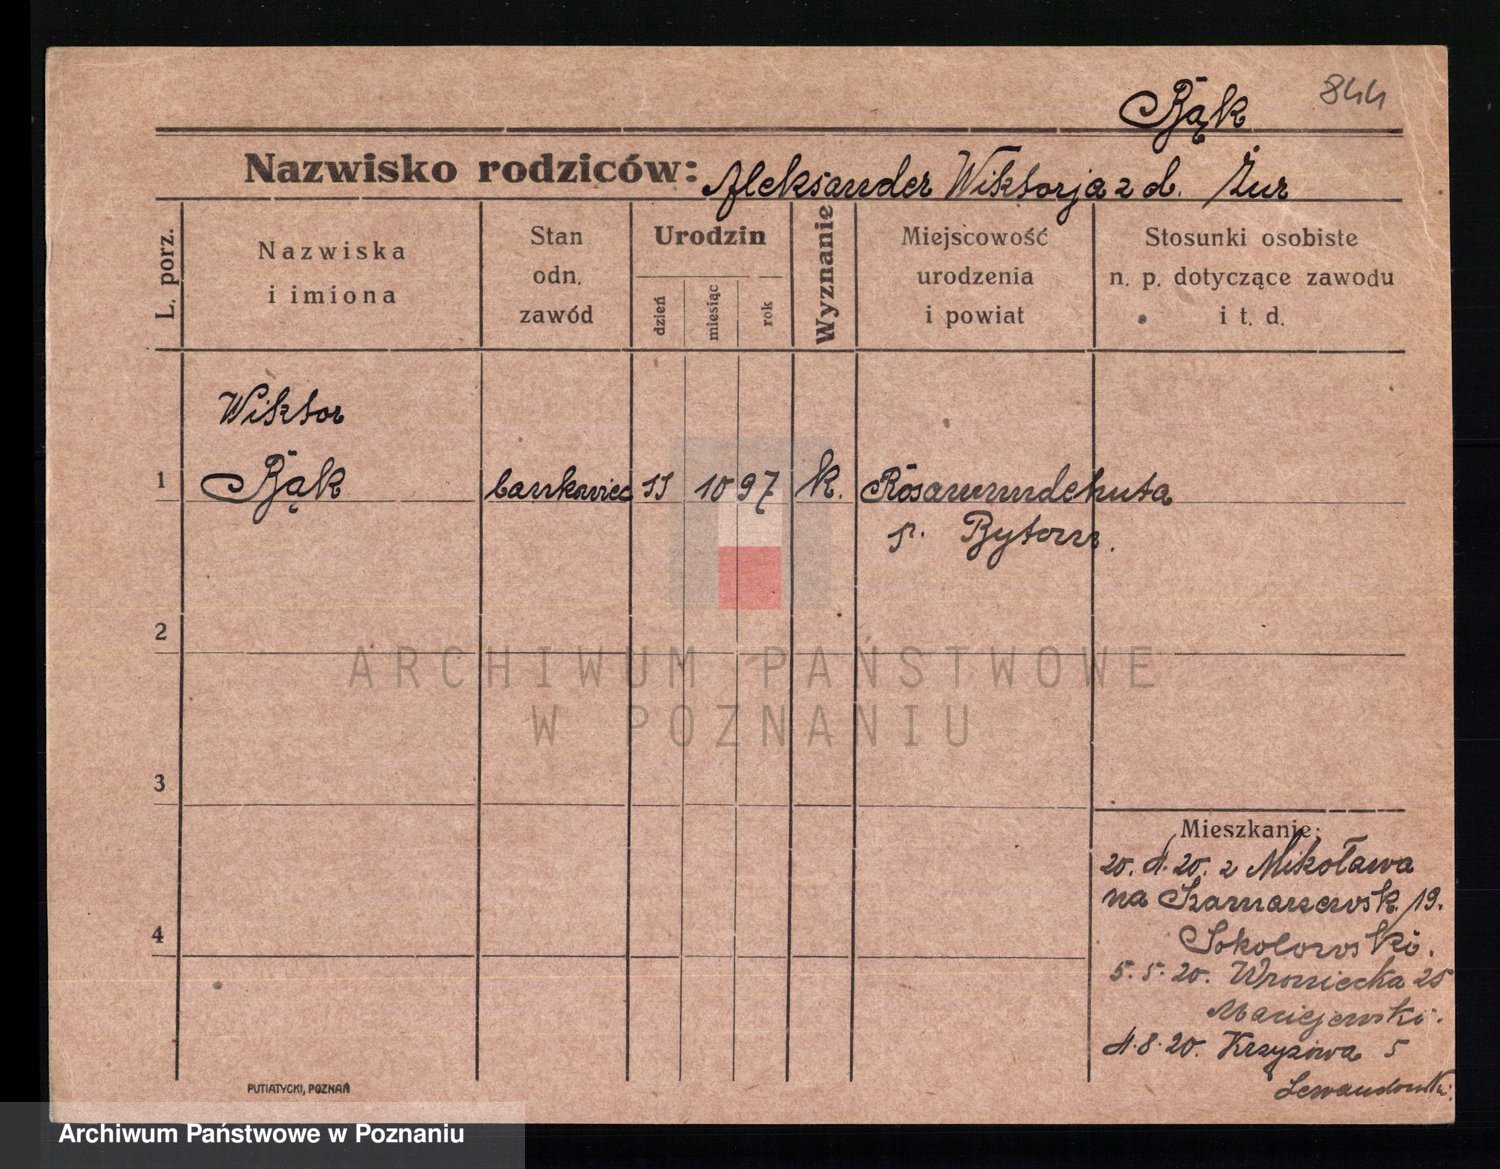 Bąk 844
Nazwisko rodziców: Aleksander Wiktorja z d. Żur
L. porz.
Nazwiska
i imiona
Stan
odn.
zawód
Urodzin
dzień
miesiąc
rok
Wyznanie
Miejscowość
urodzenia
i powiat
Stosunki osobiste
n. p. dotyczące zawodu
i t. d.
Wiktor
1 Bąk bankowiec 11 10 97 k. Rosamundehuta
p. Bytom.
2
ARCHIWUM PAŃSTWOWE
W POZNANIU
3
Mieszkanie:
20. 4. 20. z Mikołowa
na Szamarzewsk. 19.
Sokolowski.
4
5. 5. 20. Wroniecka 25
Maciejewski.
4. 8. 20. Krzyżowa 5
Lewandowski.
PUTIATYCKI, POZNAŃ
Archiwum Państwowe w Poznaniu